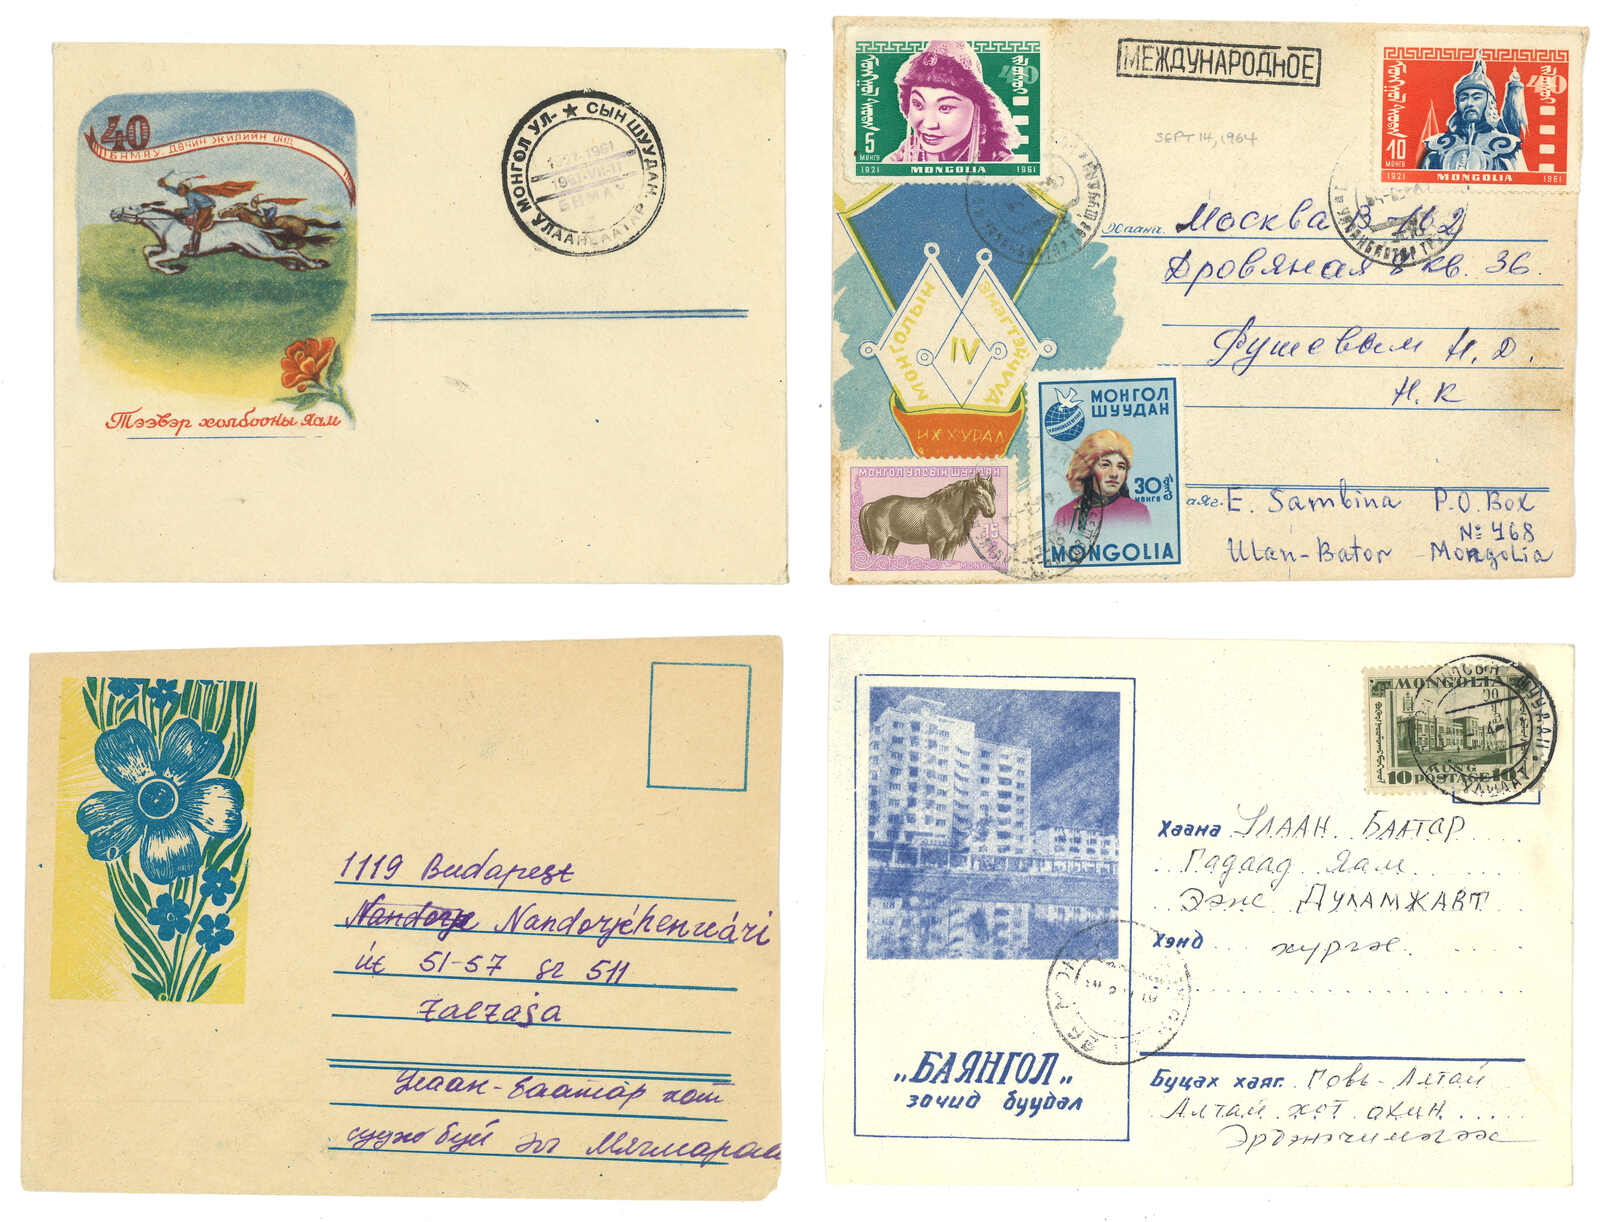 40
БНМАУ. ДӨЧИН ЖИЛИЙН ОЙД
Тээвэр холбооны Яам
МОНГОЛ УЛ- ★ СЫН ШУУДАН.
УЛААНБААТАР
1921-1961
1961-VII-11
БНМАУ
40
5
МӨНГӨ
1921 MONGOLIA 1961
МЕЖДУНАРОДНОЕ
SEPT 14, 1964
40
10
МӨНГӨ
1921 MONGOLIA 1961
Хаана. Москва В-162
Дровяная 8 кв. 36.
Фушевым Н. Д.
Н. К
МОНГОЛЫН
ЭМЭГТЭЙЧҮҮД
IV
ИХ ХУРАЛ
МОНГОЛ УЛСЫН ШУУДАН
15
МОНГОЛ
ШУУДАН
30
МӨНГӨ
MONGOLIA
Хаяг. E. Sambina P.O. Box
№ 468
Ulan-Bator Mongolia
1119 Budapest
Nandorjehenvári
út 51-57 sz 511
Zalzaja
Улаан-Баатар хот
суух буй
MONGOLIA
10 KUNG 10
POSTAGE
Хаана УЛААН БААТАР
Гадаад Яам
Ээнс ДУЛАМЖАВТ
Хэнд хүргэх.
„БАЯНГОЛ„
зочид буудал
Буцах хаяг. Говь-Алтай
Алтай хот ахин
Эрдэнэчимэгээс